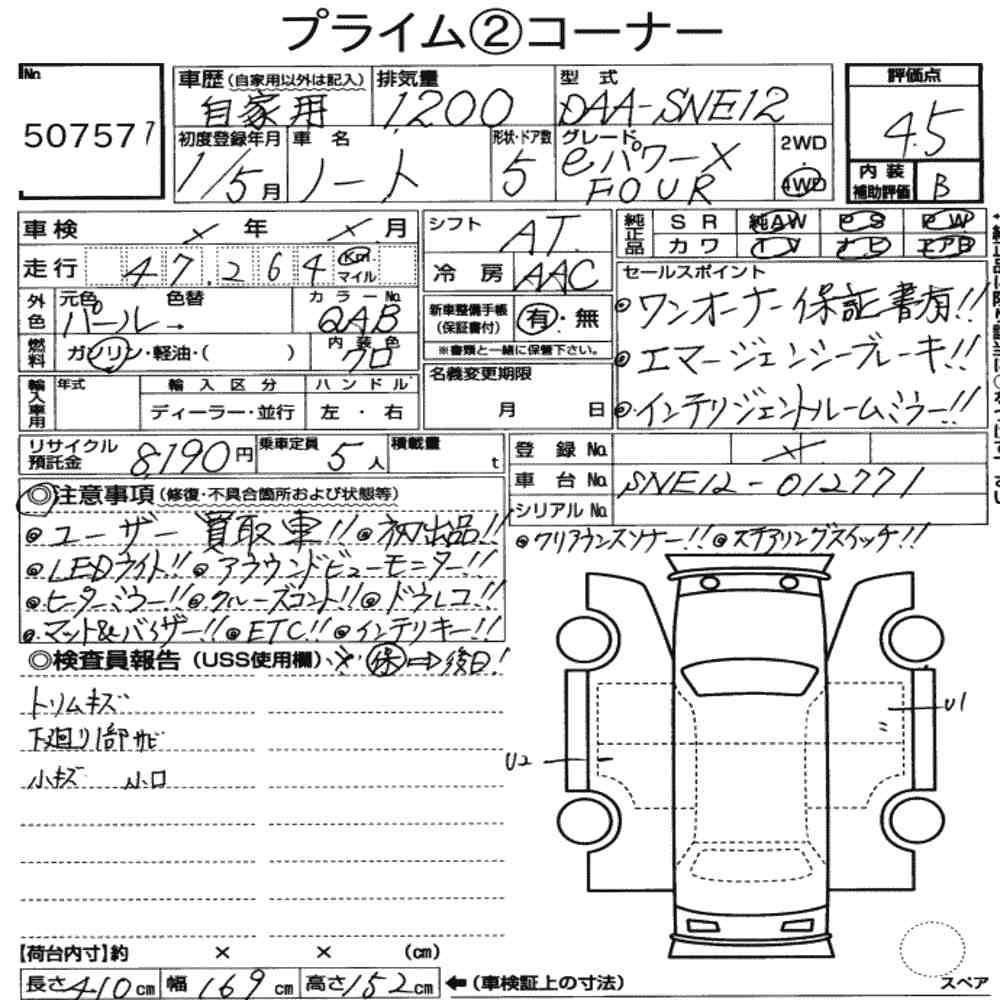 プライム②コーナー
No.
507571
車歴(自家用以外は記入)
自家用
排気量
1200
型式
DAA-SNE12
評価点
4.5
初度登録年月
1/5月
車名
ノート
形状・ドア数
5
グレード
eパワーX
FOUR
2WD
・
4WD
内装
補助評価
B
車検 × 年 × 月
走行 47,264 Km
マイル
シフト
AT
冷房 AAC
純正品
SR 純AW PS PW
カワ TV ナビ エアB
外色
元色 色替
パール→
カラーNo.
QAB
燃料
ガソリン・軽油・( )
内装色
クロ
新車整備手帳
(保証書付)
有・無
※書類と一緒に保管下さい。
セールスポイント
◎ワンオーナー保証書有!!
◎エマージェンシーブレーキ!!
◎インテリジェントルームミラー!!
輸入車用
年式
輸入区分
ディーラー・並行
ハンドル
左・右
名義変更期限
月 日
リサイクル
預託金
8190円
乗車定員
5人
積載量
t
登録No. ×
車台No. SNE12-012771
シリアルNo.
◎注意事項(修復・不具合箇所および状態等)
◎ユーザー買取車!! ◎初出品!!
◎クリアランスソナー!! ◎ステアリングスイッチ!!
◎LEDライト!! ◎アラウンドビューモニター!!
◎ヒーターミラー!! ◎クルーズコント!! ◎ドラレコ!!
◎マット&バイザー!! ◎ETC!! ◎インテリキー!!
◎検査員報告(USS使用欄) ※保⇒後日!
トリムキズ
下廻り1部サビ
小キズ 小凹
U1
U2
【荷台内寸】約 × × (cm)
長さ410cm 幅169cm 高さ152cm ←(車検証上の寸法)
スペア